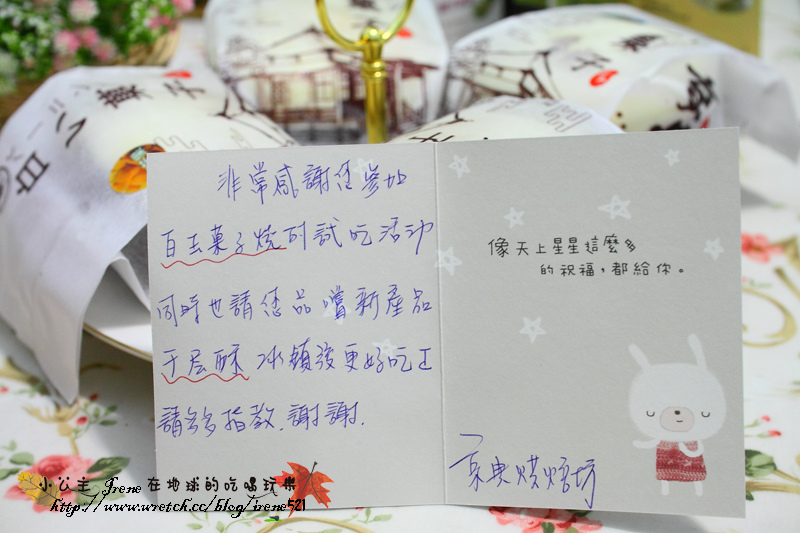 非常感謝您參加
白玉菓子燒的試吃活動
同時也請您品嚐新產品
千层酥 冰鎮後更好吃
請多多指教.謝謝.
像天上星星這麼多
的祝福,都給你。
烘焙坊
小公主 Irene 在地球的吃喝玩樂
http://www.wretch.cc/blog/irene521